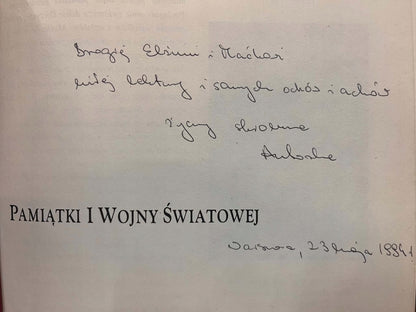 Drogiej Elżuni i Maćkowi
miłej lektury i samych ochów i achów
życzy skromna
Autorka
PAMIĄTKI I WOJNY ŚWIATOWEJ
Warszawa, 23 maja 1994 r